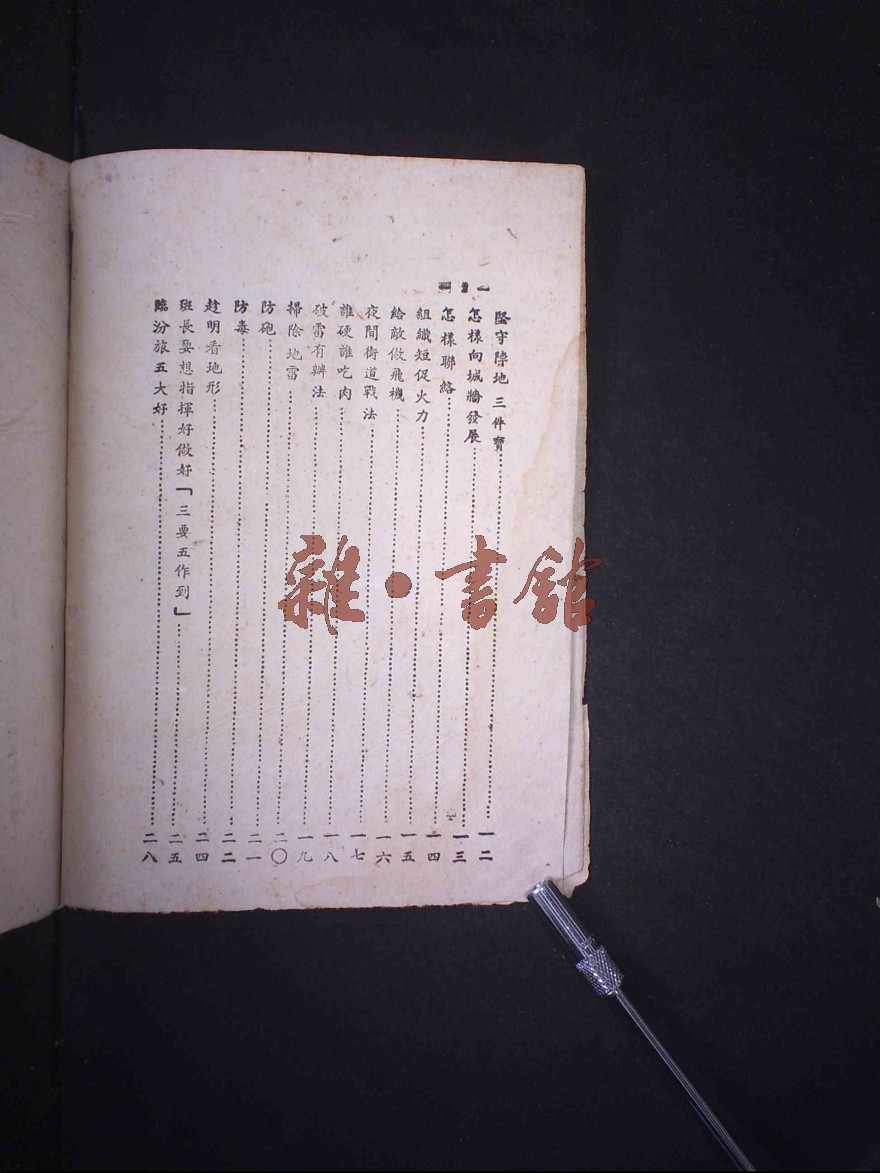 堅守陣地三件寶……一二
怎樣向城牆發展……一三
怎樣聯絡……一四
組織短促火力……一五
給敵做飛機……一六
夜間街道戰法……一七
誰硬誰吃肉……一八
破雷有辦法……一九
掃除地雷……二〇
防砲……二一
防毒……二二
趁明看地形……二四
班長要想指揮好做好「三要五作到」……二五
臨汾旅五大好……二八
雜·書館